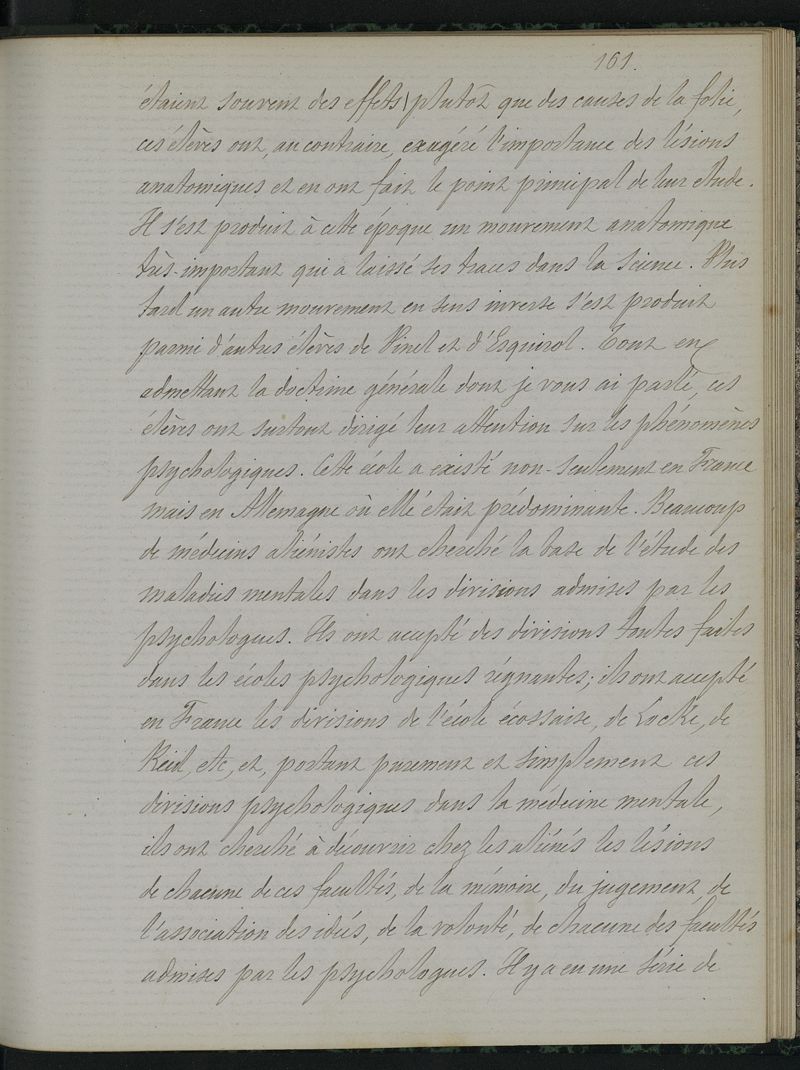 161.
étaient souvent des effets plutôt que des causes de la folie,
ces élèves ont, au contraire, exagéré l'importance des lésions
anatomiques et en ont fait le point principal de leur étude.
Il s'est produit à cette époque un mouvement anatomique
très-important qui a laissé ses traces dans la science. Plus
tard un autre mouvement en sens inverse s'est produit
parmi d'autres élèves de Pinel et d'Esquirol. Tout en
admettant la doctrine générale dont je vous ai parlé, ces
élèves ont surtout dirigé leur attention sur les phénomènes
psychologiques. Cette école a existé non-seulement en France
mais en Allemagne où elle était prédominante. Beaucoup
de médecins aliénistes ont cherché la base de l'étude des
maladies mentales dans les divisions admises par les
psychologues. Ils ont accepté des divisions toutes faites
dans les écoles psychologiques régnantes; ils ont accepté
en France les divisions de l'école écossaise, de Locke, de
Reid, etc, et, portant purement et simplement ces
divisions psychologiques dans la médecine mentale,
ils ont cherché à découvrir chez les aliénés les lésions
de chacune de ces facultés, de la mémoire, du jugement, de
l'association des idées, de la volonté, de chacune des facultés
admises par les psychologues. Il y a eu une série de